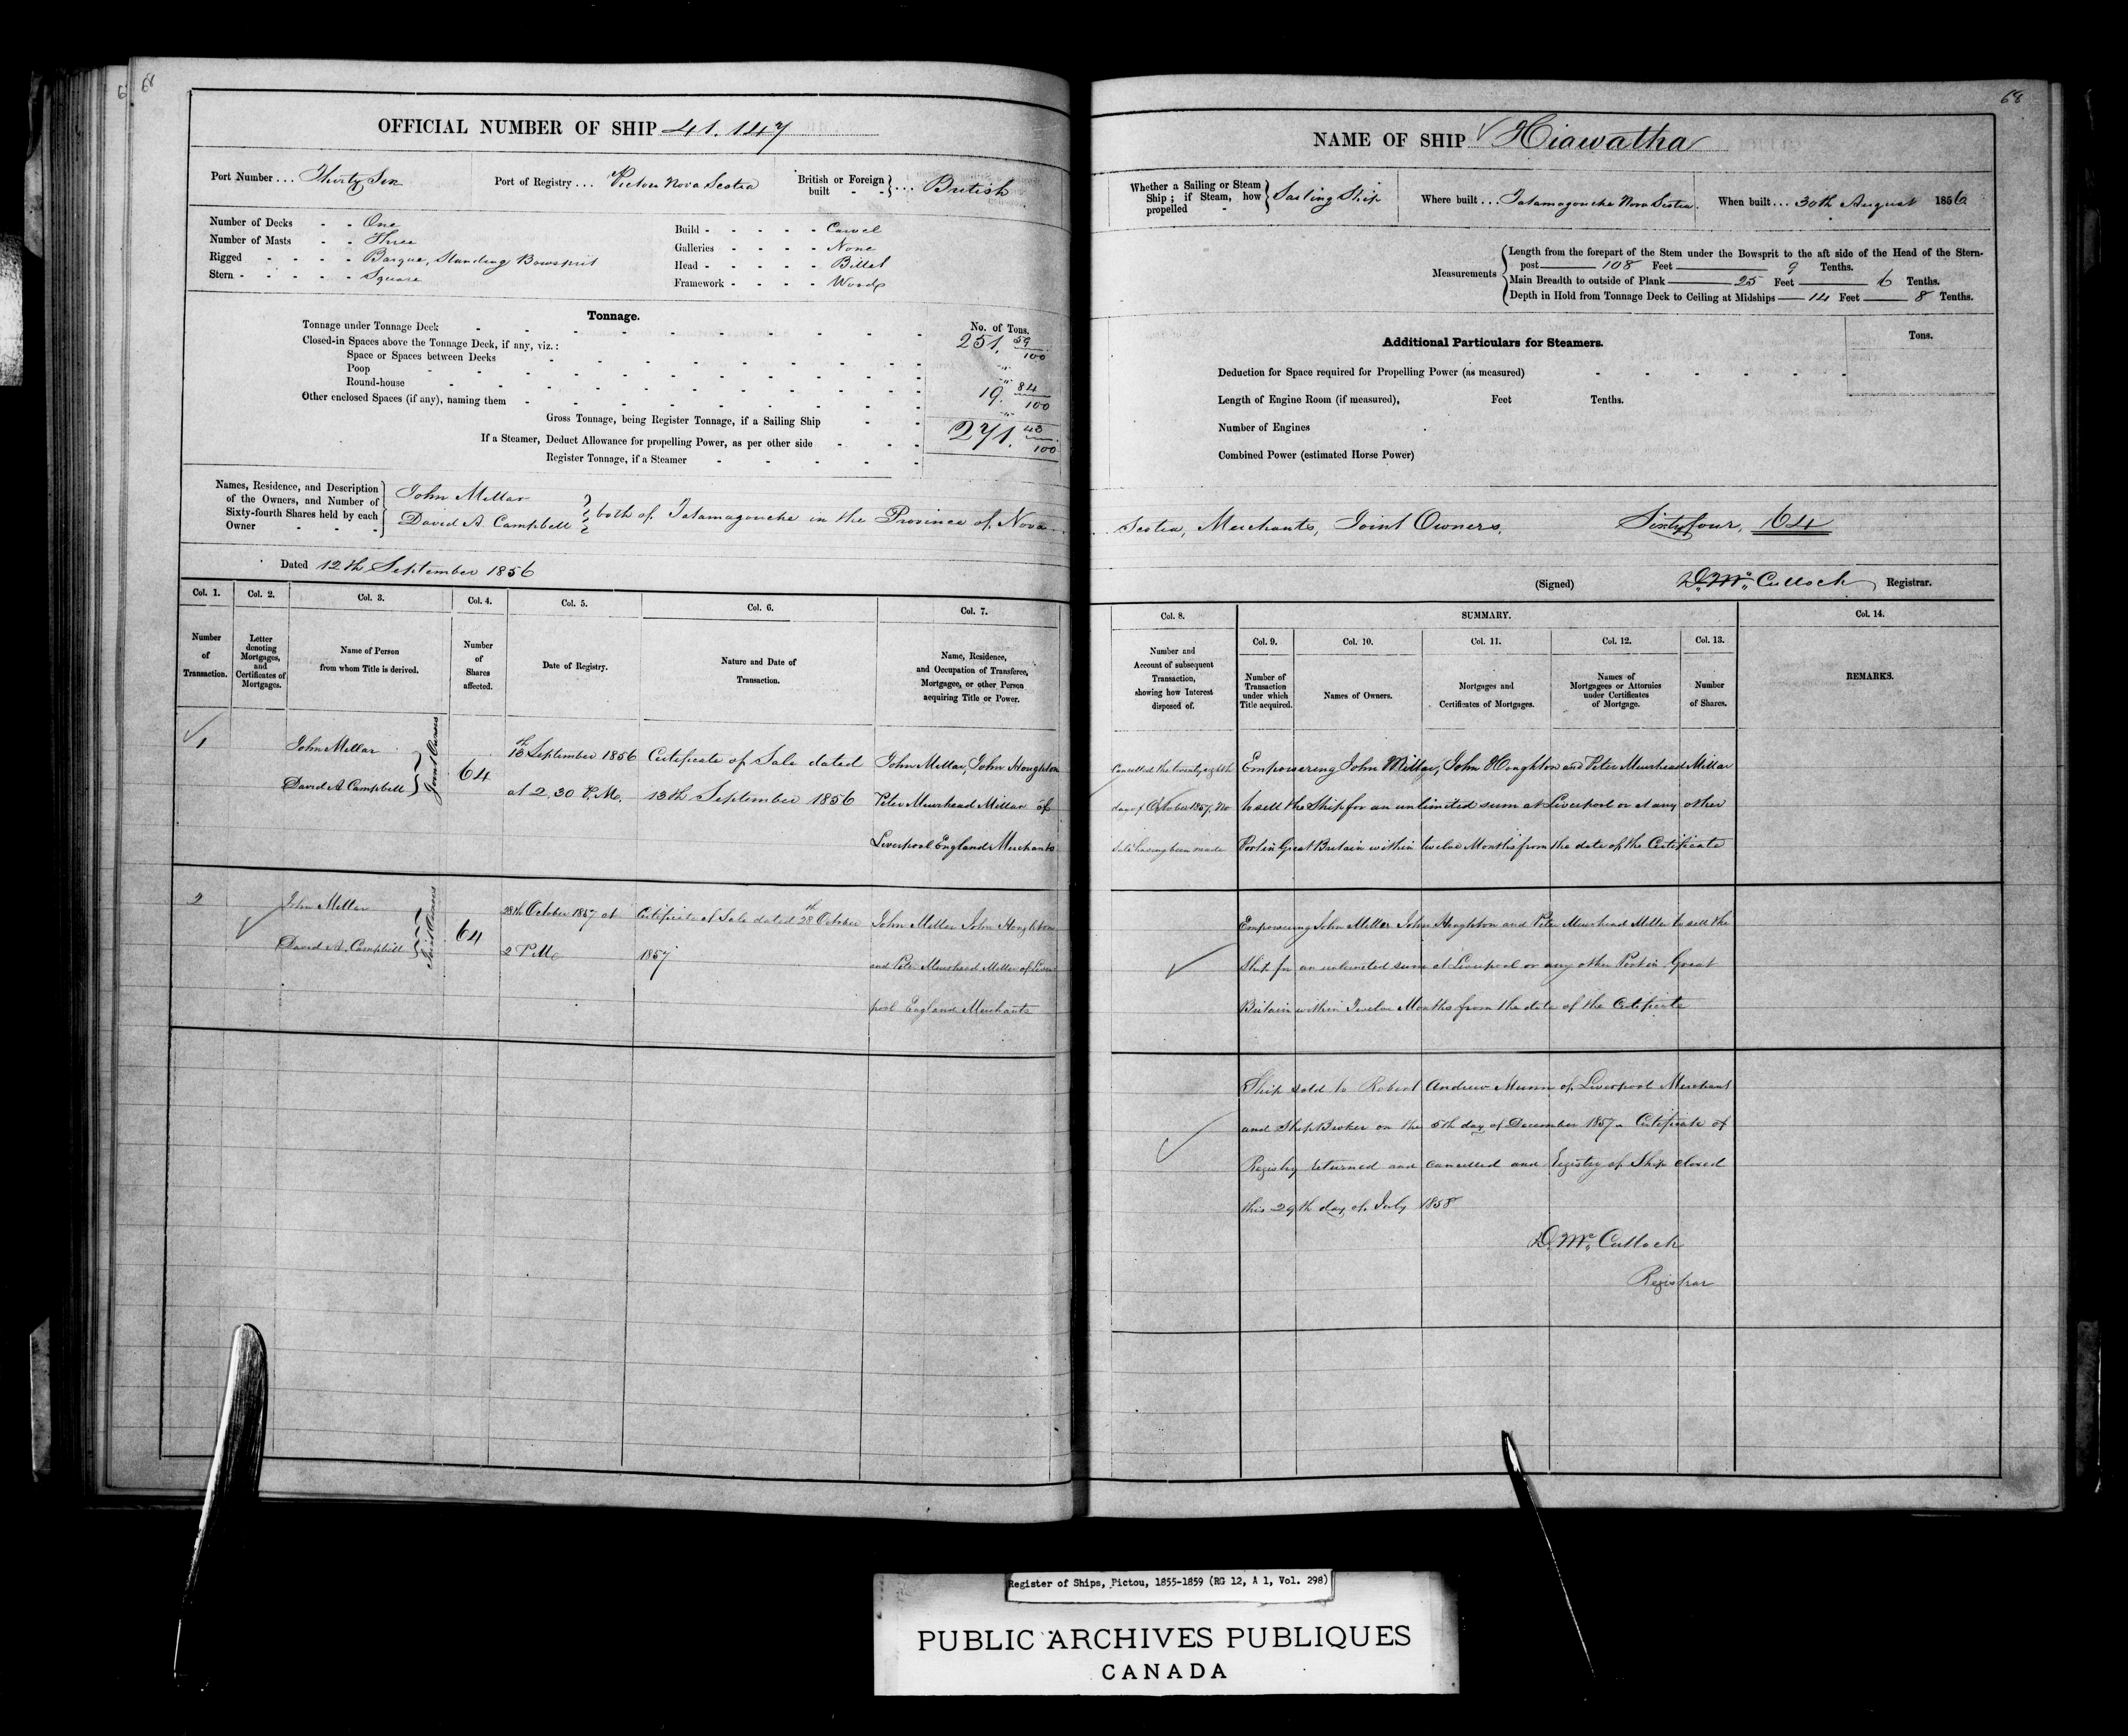 68
OFFICIAL NUMBER OF SHIP 41.147
Port Number ... Thirty Six
Port of Registry ... Pictou Nova Scotia
British or Foreign built - - } ... British
Number of Decks - - One
Number of Masts - - Three
Rigged - - - - Barque, Standing Bowsprit
Stern - - - - - Square
Build - - - - - Carvel
Galleries - - - - None
Head - - - - - Billet
Framework - - - - Wood
Tonnage.
No. of Tons.
Tonnage under Tonnage Deck 251. 59/100
Closed-in Spaces above the Tonnage Deck, if any, viz.:
Space or Spaces between Decks "
Poop "
Round-house 19. 84/100
Other enclosed Spaces (if any), naming them "
Gross Tonnage, being Register Tonnage, if a Sailing Ship 271. 43/100
If a Steamer, Deduct Allowance for propelling Power, as per other side
Register Tonnage, if a Steamer
Names, Residence, and Description of the Owners, and Number of Sixty-fourth Shares held by each Owner
John Millar
David A. Campbell } both of Tatamagouche in the Province of Nova
Dated 12th September 1856
Col. 1. Col. 2. Col. 3. Col. 4. Col. 5. Col. 6. Col. 7.
Number of Transaction.
Letter denoting Mortgages, and Certificates of Mortgages.
Name of Person from whom Title is derived.
Number of Shares affected.
Date of Registry.
Nature and Date of Transaction.
Name, Residence, and Occupation of Transferee, Mortgagee, or other Person acquiring Title or Power.
1 John Millar
David A Campbell } Joint Owners
64
13th September 1856
at 2.30 P.M.
Certificate of Sale dated
13th September 1856
John Millar, John Houghton
Peter Muirhead Millar of
Liverpool England Merchants
2 John Millar
David A. Campbell } Joint Owners
64
28th October 1857 at
2 P M
Certificate of Sale dated 28th October
1857
John Millar John Houghton
and Peter Muirhead Millar of Liver
pool England Merchants
68
NAME OF SHIP Hiawatha
Whether a Sailing or Steam Ship; if Steam, how propelled - } Sailing Ship
Where built ... Tatamagouche Nova Scotia.
When built ... 30th August 1856
Measurements
Length from the forepart of the Stem under the Bowsprit to the aft side of the Head of the Stern-
post 108 Feet 9 Tenths.
Main Breadth to outside of Plank 25 Feet 6 Tenths.
Depth in Hold from Tonnage Deck to Ceiling at Midships 14 Feet 8 Tenths.
Additional Particulars for Steamers.
Tons.
Deduction for Space required for Propelling Power (as measured)
Length of Engine Room (if measured), Feet Tenths.
Number of Engines
Combined Power (estimated Horse Power)
Scotia, Merchants, Joint Owners. Sixty four, 64
(Signed) D. McCulloch Registrar.
Col. 8. SUMMARY. Col. 14.
Col. 9. Col. 10. Col. 11. Col. 12. Col. 13.
Number and Account of subsequent Transaction, showing how Interest disposed of.
Number of Transaction under which Title acquired.
Names of Owners.
Mortgages and Certificates of Mortgages.
Names of Mortgagees or Attornies under Certificates of Mortgage.
Number of Shares.
REMARKS.
Cancelled the twenty eighth
day of October 1857. No
Sale having been made
Empowering John Millar, John Houghton and Peter Muirhead Millar
to sell the Ship for an unlimited sum at Liverpool or at any other
Port in Great Britain within twelve Months from the date of the Certificate
Empowering John Millar John Houghton and Peter Muirhead Millar to sell the
Ship for an unlimited sum at Liverpool or any other Port in Great
Britain within Twelve Months from the date of the Certificate
Ship sold to Robert Andrew Munn of Liverpool Merchant
and Ship Broker on the 5th day of December 1857. Certificate of
Registry returned and cancelled and Registry of Ship closed
this 29th day of July 1858
D. McCulloch
Registrar
Register of Ships, Pictou, 1855-1859 (RG 12, A 1, Vol. 298)
PUBLIC ARCHIVES PUBLIQUES
CANADA